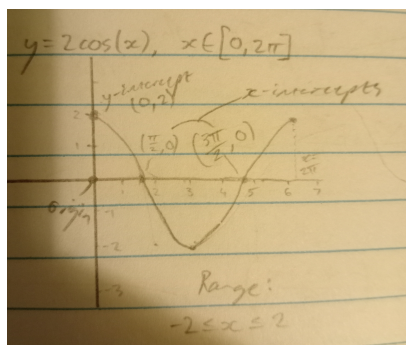 y=2cos(x), x∈[0,2π]
y-intercept
(0,2)
x-intercepts
2
(π/2,0) (3π/2,0)
1
origin
1 2 3 4 5 6 7
-1
-2
-3
Range:
-2≤x≤2